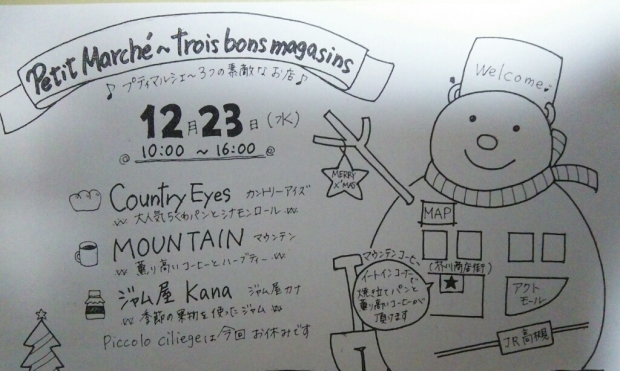 Petit Marché~trois bons magasins
♪ プティマルシェ~3つの素敵なお店♪
12月23日(水)
@ 10:00 ~ 16:00 @
Country Eyes カントリーアイズ
大人気ちくわパンとシナモンロール
MOUNTAIN マウンテン
薫り高いコーヒーとハーブティー
ジャム屋 Kana ジャム屋カナ
季節の果物を使ったジャム
Piccolo ciliegeは今回お休みです
Welcome♪
MERRY
X'MAS
MAP
(芥川商店街)
マウンテンコーヒー
イートインコーナーで
焼き立てパンと
薫り高いコーヒーが
頂けます
アクト
モール
JR高槻